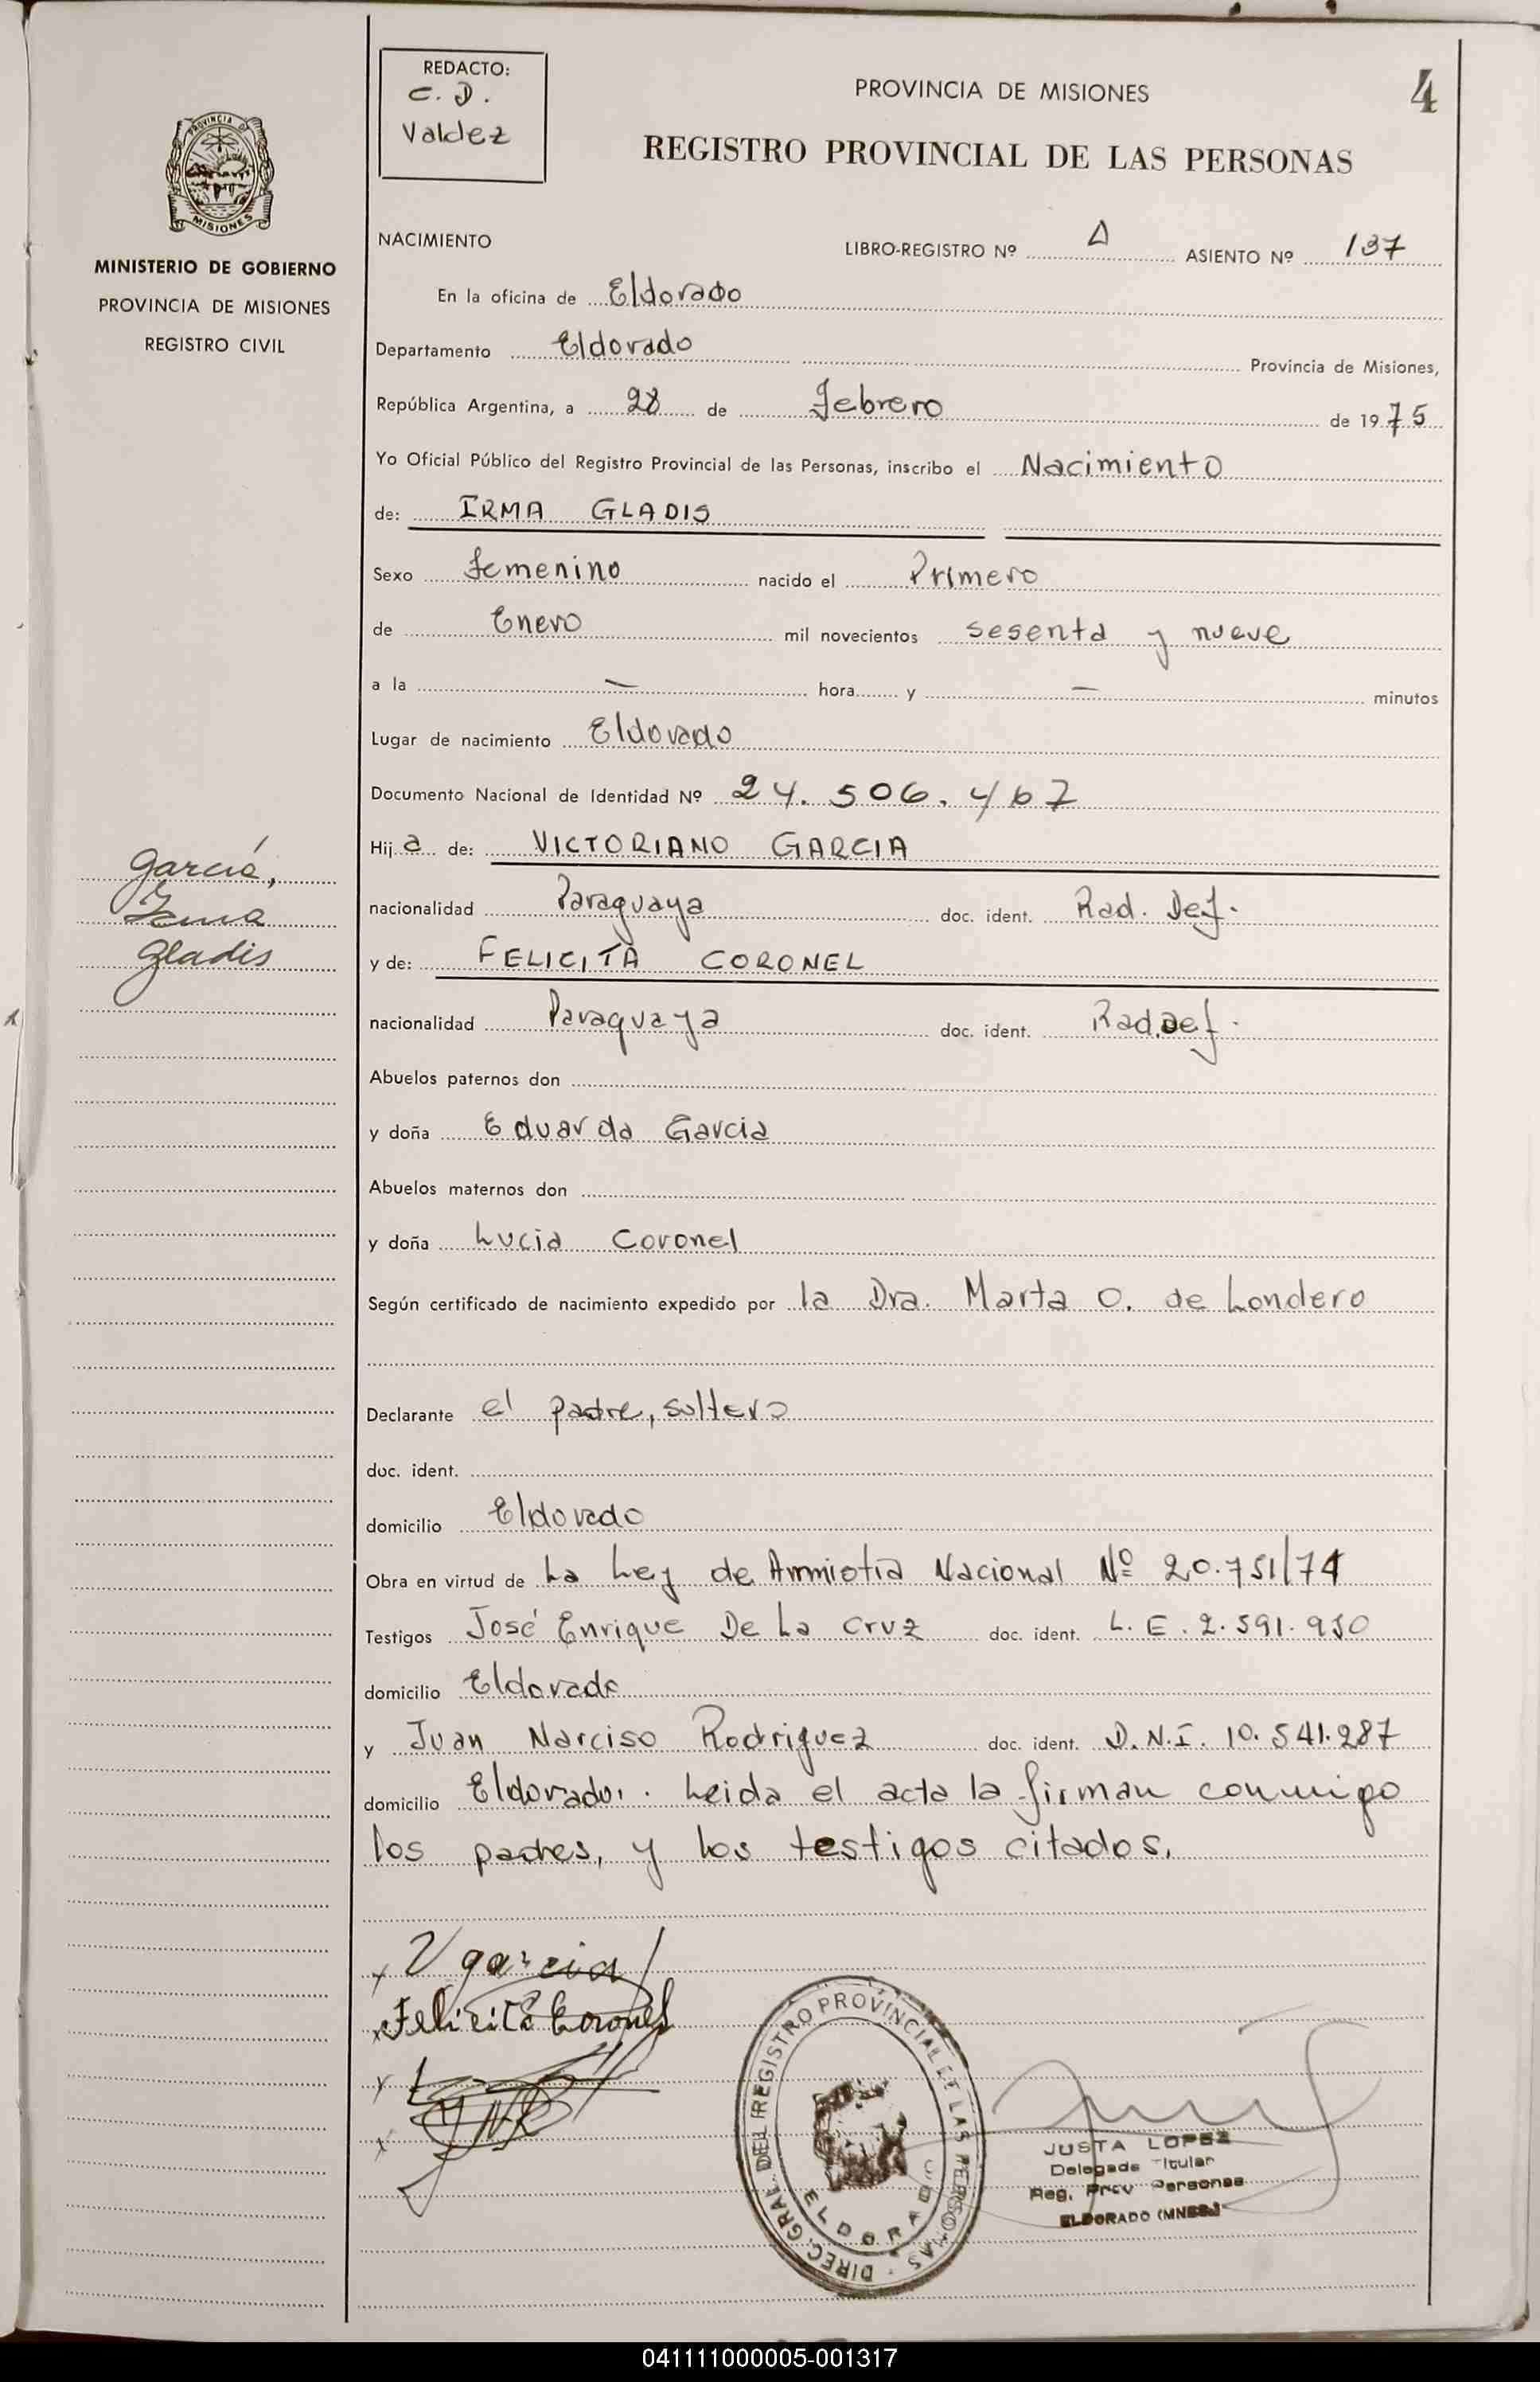 REDACTO:
C. D.
Valdez
PROVINCIA DE MISIONES
4
REGISTRO PROVINCIAL DE LAS PERSONAS
PROVINCIA DE
MISIONES
MINISTERIO DE GOBIERNO
PROVINCIA DE MISIONES
REGISTRO CIVIL
NACIMIENTO
LIBRO-REGISTRO Nº ASIENTO Nº 137
En la oficina de Eldorado
Departamento Eldorado Provincia de Misiones,
República Argentina, a 28 de Febrero de 1975
Yo Oficial Público del Registro Provincial de las Personas, inscribo el Nacimiento
de: IRMA GLADIS
Sexo femenino nacido el Primero
de Enero mil novecientos sesenta y nueve
a la — hora y — minutos
Lugar de nacimiento Eldorado
Documento Nacional de Identidad Nº 24.506.467
Hija de: VICTORIANO GARCIA
García,
Irma
Gladis
nacionalidad Paraguaya doc. ident. Rad. Def.
y de: FELICITA CORONEL
nacionalidad Paraguaya doc. ident. Rad.Def.
Abuelos paternos don
y doña Eduarda Garcia
Abuelos maternos don
y doña Lucia Coronel
Según certificado de nacimiento expedido por la Dra. Marta O. de Londero
Declarante el padre, soltero
doc. ident.
domicilio Eldorado
Obra en virtud de La Ley de Amnistia Nacional Nº 20.751/74
Testigos José Enrique De La Cruz doc. ident. L.E. 2.591.950
domicilio Eldorado
y Juan Narciso Rodriguez doc. ident. D.N.I. 10.541.287
domicilio Eldorado. Leida el acta la firman conmigo
los padres, y los testigos citados.
x V garcia
x Felicita Coronel
x
x JNR
DIREC. GRAL. DEL REGISTRO PROVINCIAL DE LAS PERSONAS
ELDORADO
JUSTA LOPEZ
Delegada Titular
Reg. Prov Personas
ELDORADO (MNES.)
041111000005-001317